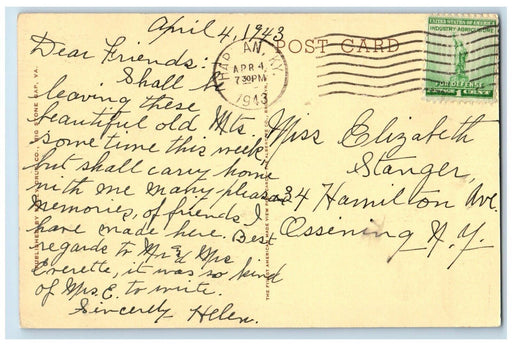 April 4, 1943
Dear Friends:
Shall be
leaving these
beautiful old Mts.
sometime this week,
but shall carry home
with me many pleasant
memories, of friends I
have made here. Best
regards to Mr & Mrs
Everette, it was so kind
of Mrs. E. to write.
Sincerely Helen.
POST CARD
AN, KY.
APR 4
7 30 PM
1943
UNITED STATES OF AMERICA
INDUSTRY AGRICULTURE
FOR DEFENSE
1 CENT
Miss Elizabeth
Stanger,
34 Hamilton Ave.
Ossening N.Y.
PUBLISHED BY
DRUG CO., BIG STONE GAP, VA.